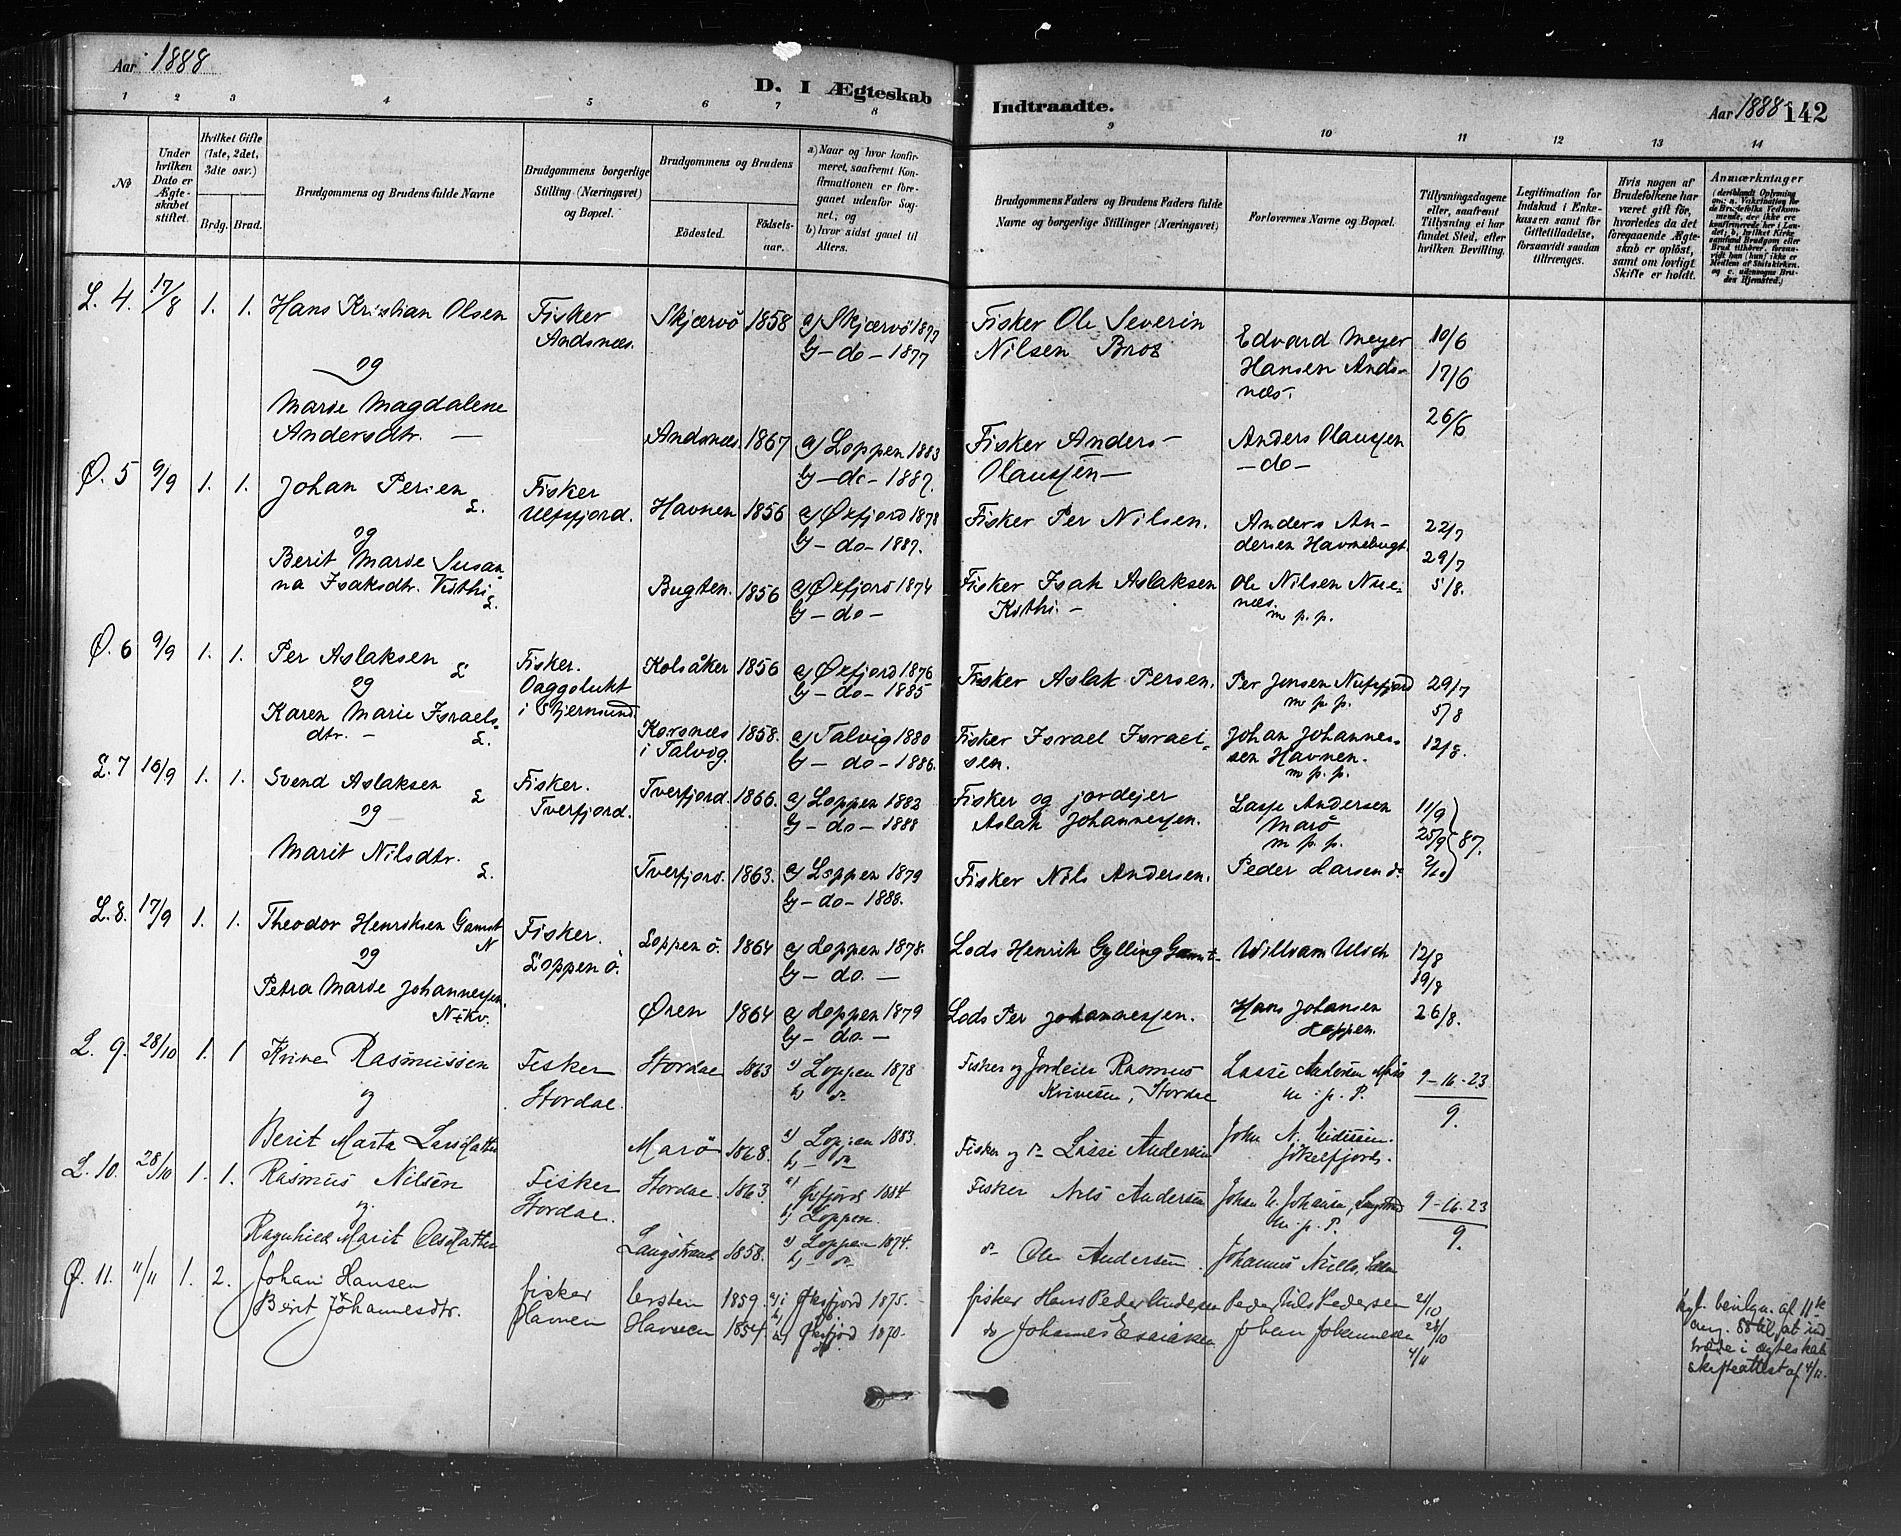 Aar 1888
D. I Ægteskab
Indtraadte.
Aar 1888 142
1 2 3 4 5 6 7 8 9 10 11 12 13 14
No
Under hvilken Dato er Ægteskabet stiftet.
Hvilket Gifte (1ste, 2det, 3die osv.)
Brdg. Brud.
Brudgommens og Brudens fulde Navne
Brudgommens borgerlige Stilling (Næringsvei) og Bopæl.
Brudgommens og Brudens
Födested.
Födsels-aar.
a) Naar og hvor konfirmeret, saafremt Konfirmationen er foregaaet udenfor Sognet, og
b) hvor sidst gaaet til Alters.
Brudgommens Faders og Brudens Faders fulde Navne og borgerlige Stillinger (Næringsvei)
Forlovernes Navne og Bopæl.
Tillysningsdagene eller, saafremt Tillysning ei har fundet Sted, efter hvilken Bevilling.
Legitimation for Indskud i Enkekassen samt for Giftetilladelse, forsaavidt saadan tiltrænges.
Hvis nogen af Brudefolkene har været gift før, hvorledes da det foregaaende Ægteskab er oplöst, samt om lovligt Skifte er holdt.
Anmærkninger
L. 4. 17/8 1. 1. Hans Kristian Olsen Fisker Andsnæs. Skjærvö 1858 a) Skjærvö 1877 b) - do - 1877 Fisker Ole Severin Nilsen Edvard Meyer Hansen Andsnæs. 10/6 17/6 26/6
og
Marie Magdalene Andersdtr. - Andsnæs 1867 a) Loppen 1883 b) - do - 1887. Fisker Anders Olaussen - Anders Olaussen - do -
Ø. 5 9/9 1. 1. Johan Persen L. Fisker Ulfsfjord. Havnen 1856 a) Øxfjord 1878 b) - do - 1887. Fisker Per Nilsen. Anders Andersen Havnebugt 22/7 29/7 5/8.
og
Berit Marie Susanna Isaksdtr. L. Bugten. 1856 a) Øxfjord 1874 b) - do - Fisker Isak Aslaksen Ole Nilsen m p. p.
Ø. 6 9/9 1. 1. Per Aslaksen L Fisker. Kolsåker 1856 a) Øxfjord 1876 b) - do - 1885 Fisker Aslak Persen. Per Jonsen m p. p. 29/7 5/8 12/8.
og
Karen Marie Israelsdtr. - L. Korsnæs i Talvig. 1858. a) Talvig 1880 b) - do - 1886. Fisker Israel Israelsen. Johan Johannessen Havnen. m p. p.
L. 7 16/9 1. 1. Svend Aslaksen L Fisker. Tverfjord. Tverfjord. 1866. a) Loppen 1882 b) - do - 1888 Fisker og jordejer Aslak Johannessen. Lasse Andersen Marö m p. p. 11/9 25/9 2/10 87.
og -
Marit Nilsdtr. L. Tverfjord. 1863. a) Loppen 1879 b) - do - 1888. Fisker Nils Andersen. Peder Larsen do.
L. 8. 17/9 1. 1. Theodor Henriksen N Fisker. Loppen ö. Loppen ö. 1864 a) Loppen 1878. b) - do. - Lods Henrik Gylling William Ulich 12/8 19/8 26/8.
og
Petra Marie Johannessen. Øren 1864 a) Loppen 1879 b) - do. - Lods Per Johannessen. Hans Johansen Loppen.
L. 9. 28/10 1. 1 Krive Rasmussen Fisker Stordal. Stordal 1863 a) Loppen 1878 b) do Fisker og Jordeier Rasmus Krivesen, Stordal Lasse Andersen Marö m. p. P. 9-16-23 / 9.
og
Berit Marta Larsdatter Marö 1868. a) Loppen 1883. b) - do Fisker og do Lasse Andersen John N. Jökelfjord.
L. 10. 28/10 1. 1. Rasmus Nilsen Fisker Stordal. Stordal. 1863. a) Øxfjord 1884 b) Loppen. Fisker Nils Andersen m. p. P. 9-16.23 / 9.
og.
Ragnhild Marit Olsdatter Langstrand 1858. a) Loppen 1874. b) - do do Ole Andersen.
Ø. 11. 11/11 1. 2. Johan Hansen fisker Havnen 1859. Øxfjord 1875. fisker Hans Peder Andersen Peder Nils Pedersen 21/10 28/10 4/11
Berit Johannesdtr. Havnen 1854. Øxfjord 1870. do Johannes Esaiassen Johan Johannesen
Kgl. bevilgn. af 11te aug. 88 til at indtræde i ægteskab skifteattest af 4/11.